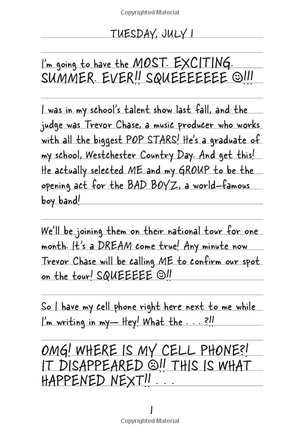 Copyrighted Material
TUESDAY, JULY 1
I'm going to have the MOST. EXCITING.
SUMMER. EVER!! SQUEEEEEEE ☺!!!
I was in my school's talent show last fall, and the
judge was Trevor Chase, a music producer who works
with all the biggest POP STARS! He's a graduate of
my school, Westchester Country Day. And get this!
He actually selected ME and my GROUP to be the
opening act for the BAD BOYZ, a world-famous
boy band!
We'll be joining them on their national tour for one
month. It's a DREAM come true! Any minute now
Trevor Chase will be calling ME to confirm our spot
on the tour! SQUEEEEE ☺!!
So I have my cell phone right here next to me while
I'm writing in my— Hey! What the . . . ?!!
OMG! WHERE IS MY CELL PHONE?!
IT DISAPPEARED ☹!! THIS IS WHAT
HAPPENED NEXT!! . . .
1
Copyrighted Material